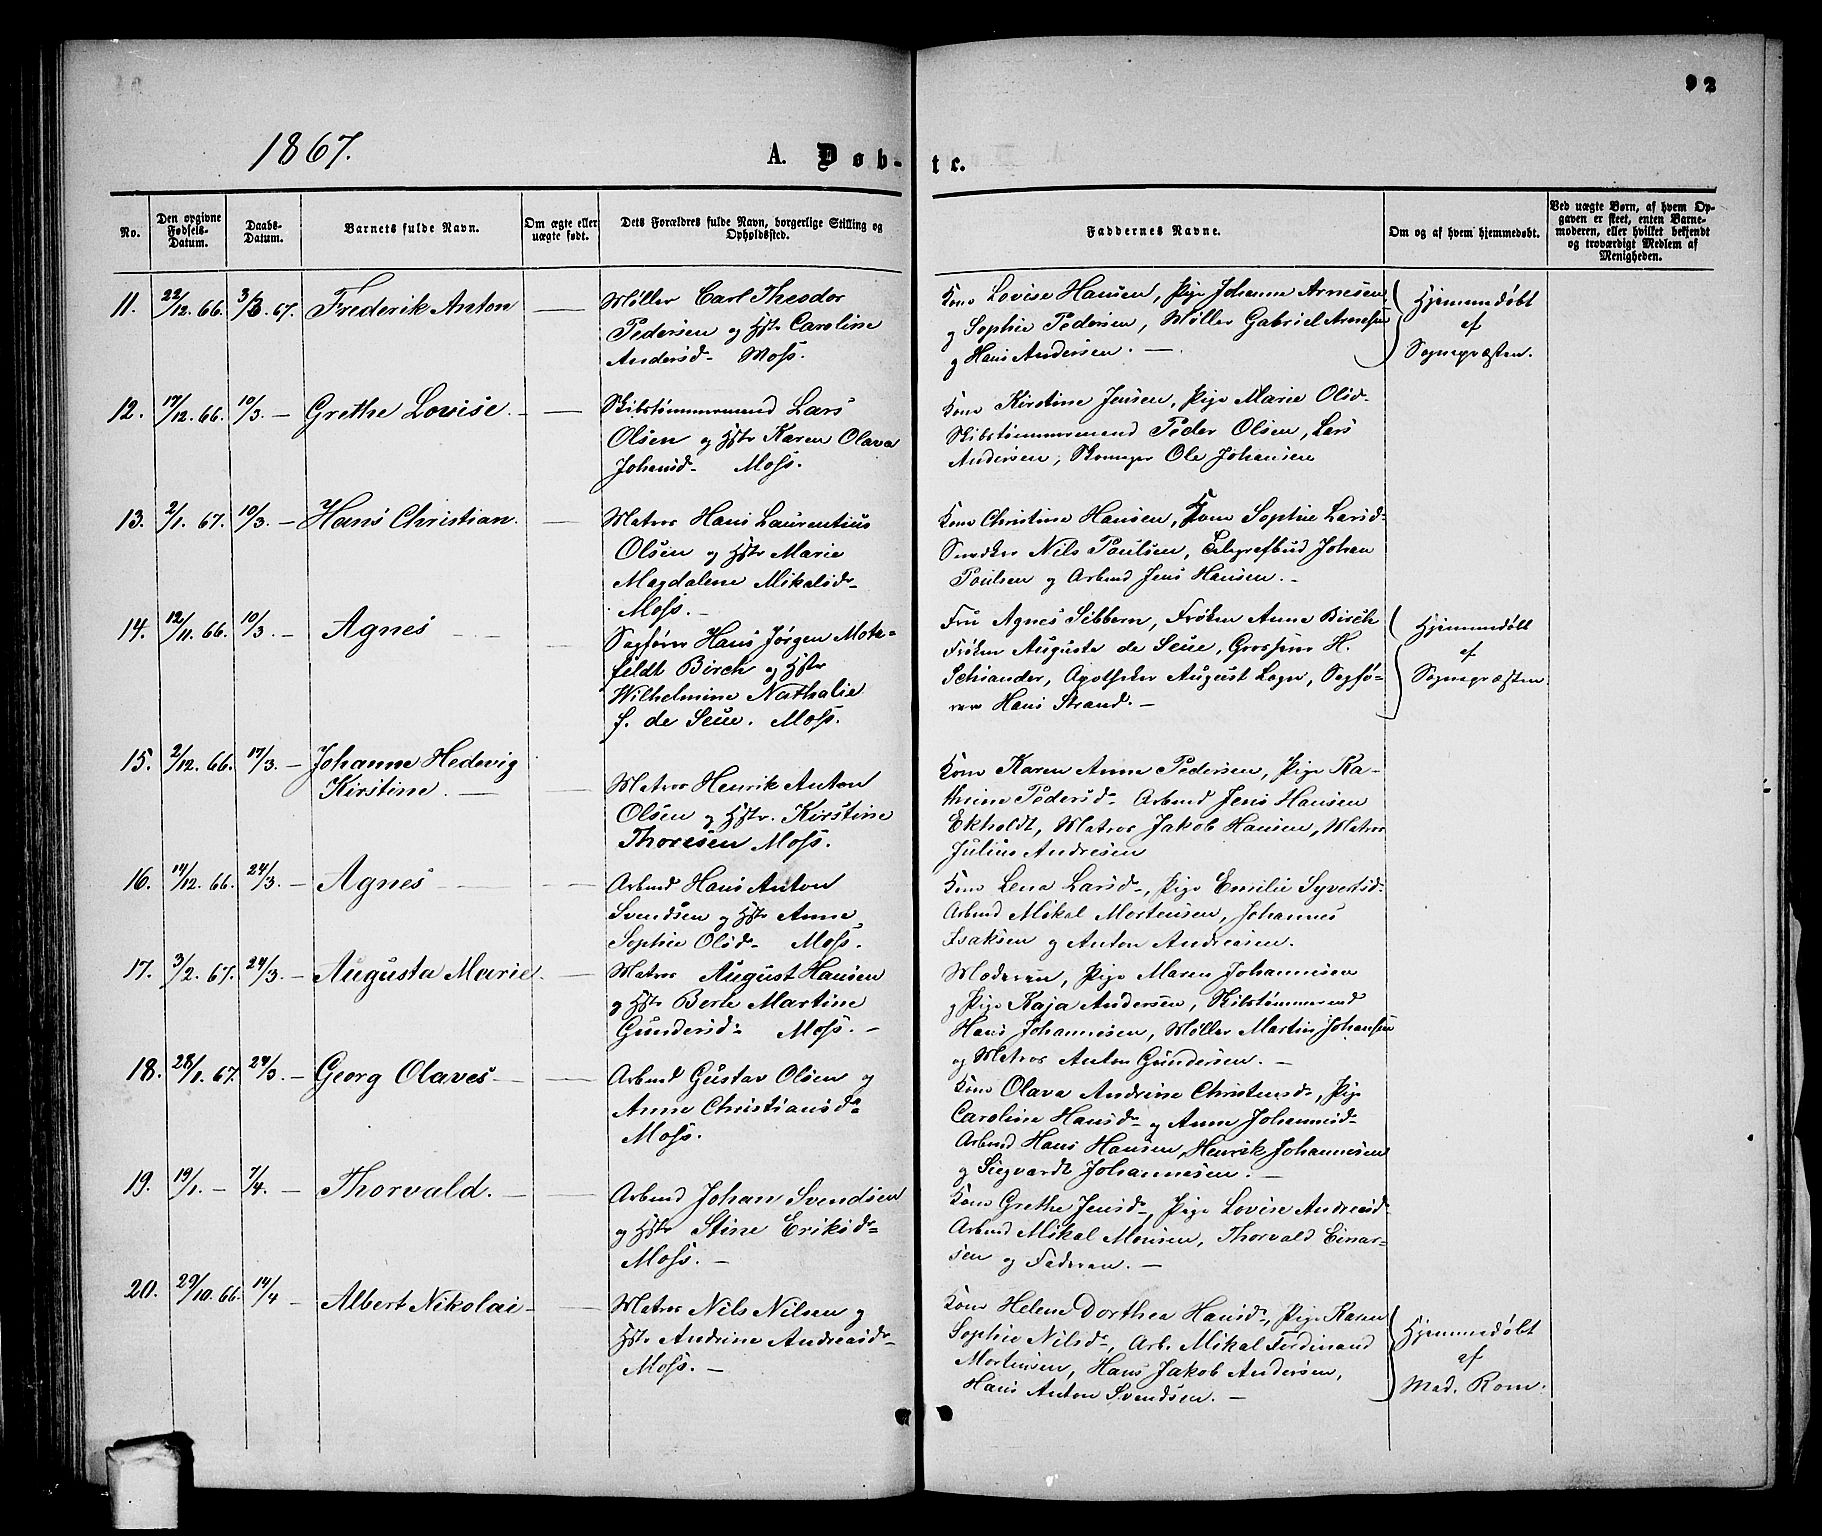 92
1867.
A. Døb-
te.
No.
Den opgivne Fødsels-Datum.
Daabs-Datum.
Barnets fulde Navn.
Om ægte eller uægte født.
Dets Forældres fulde Navn, borgerlige Stilling og Opholdssted.
Faddernes Navne.
Om og af hvem hjemmedøbt.
Ved uægte Børn, af hvem Op-
gaven er skeet, enten Barne-
moderen, eller hvilket bekjendt
og troværdigt Medlem af
Menigheden.
11. 22/12. 66. 3/3. 67. Frederik Anton —
Møller Carl Theodor
Pedersen og Hstr Caroline
Andersd- Moss.
Kone Lovise Hansen, Pige Johanne Arnesen
og Sophie Pedersen, Møller Gabriel Arnesen
og Hans Andersen. —
Hjemmedøbt
af
Sognepræsten.
12. 17/12. 66. 10/3. — Grethe Lovise. —
Skibstømmermand Lars
Olsen og Hstr Karen Olava
Johansd- Moss.
Kone Kirstine Jensen, Pige Marie Olsd-
Skibstømmermand Peder Olsen, Lars
Andersen, Ole Johansen
13. 2/1. 67. 10/3. — Hans Christian. —
Matros Hans Laurentius
Olsen og Hstr Marie
Magdalene Mikalsd-
Moss. —
Kone Christine Hansen, Kone Sophie Larsd-
Snedker Nils Paulsen, Telegrafbud Johan
Paulsen og Arbmd Jens Hansen. —
14. 12/11. 66. 10/3. — Agnes — —
Sagfører Hans Jørgen Motz-
feldt Birch og Hstr
Wilhelmine Nathalie
f. de Seue. Moss.
Fru Agnes Sibbern, Frøken Anne Birch
Frøken Augusta de Seue, Grosserer H.
Schiander, Apotheker August Lagn, Sagfø-
rer Hans Strand. —
Hjemmedøbt
af
Sognepræsten.
15. 2/12. 66. 17/3. — Johanne Hedevig
Kirstine. —
Matros Henrik Anton
Olsen og Hstr. Kirstine
Thoresen Moss.
Kone Karen Anne Pedersen, Pige Ka-
thrine Pedersd- Arbmd Jens Hansen
Ekholdt, Matros Jakob Hansen, Matros
Julius Andresen
16. 14/12. 66. 24/3. — Agnes — —
Arbmd Hans Anton
Svendsen og Hstr Anne
Sophie Olsd- Moss.
Kone Lena Larsd-, Pige Emilie Syvertsd-
Arbmd Mikal Mortensen, Johannes
Isaksen og Anton Andreasen.
17. 3/2. 67. 24/3. — Augusta Marie. —
Matros August Hansen
og Hstr Berte Martine
Gundersd- Moss. —
Moderen, Pige Maren Johannesen
og Pige Kaja Andersen, Skibstømmermd
Hans Johannesen, Møller Martin Johansen
og Matros Anton Gundersen. —
18. 28/1. 67. 24/3. — Georg Olaves — —
Arbmd Gustav Olsen og
Anne Christiansd-
Moss.
Kone Olava Andrine Christensd-, Pige
Caroline Hansd- og Anne Johannesd-
Arbmd Hans Hansen, Henrik Johannesen
og Siegvardt Johannesen. —
19. 19/1. — 7/4. — Thorvald. — —
Arbmd Johan Svendsen
og Hstr Stine Eriksd-
Moss. —
Kone Grethe Jensd-, Pige Lovise Andreasd-
Arbmd Mikal Monsen, Thorvald Einar-
sen og Faderen. —
20. 29/10. 66. 14/4 — Albert Nikolai — —
Matros Nils Nilsen og
Hstr Andrine Andreasd-
Moss. —
Kone Helene Dorthea Hansd-, Pige Karen
Sophie Nilsd-, Arb. Mikal Ferdinand
Mortensen, Hans Jakob Andersen,
Hans Anton Svendsen. —
Hjemmedøbt
af
Mad. Rom.